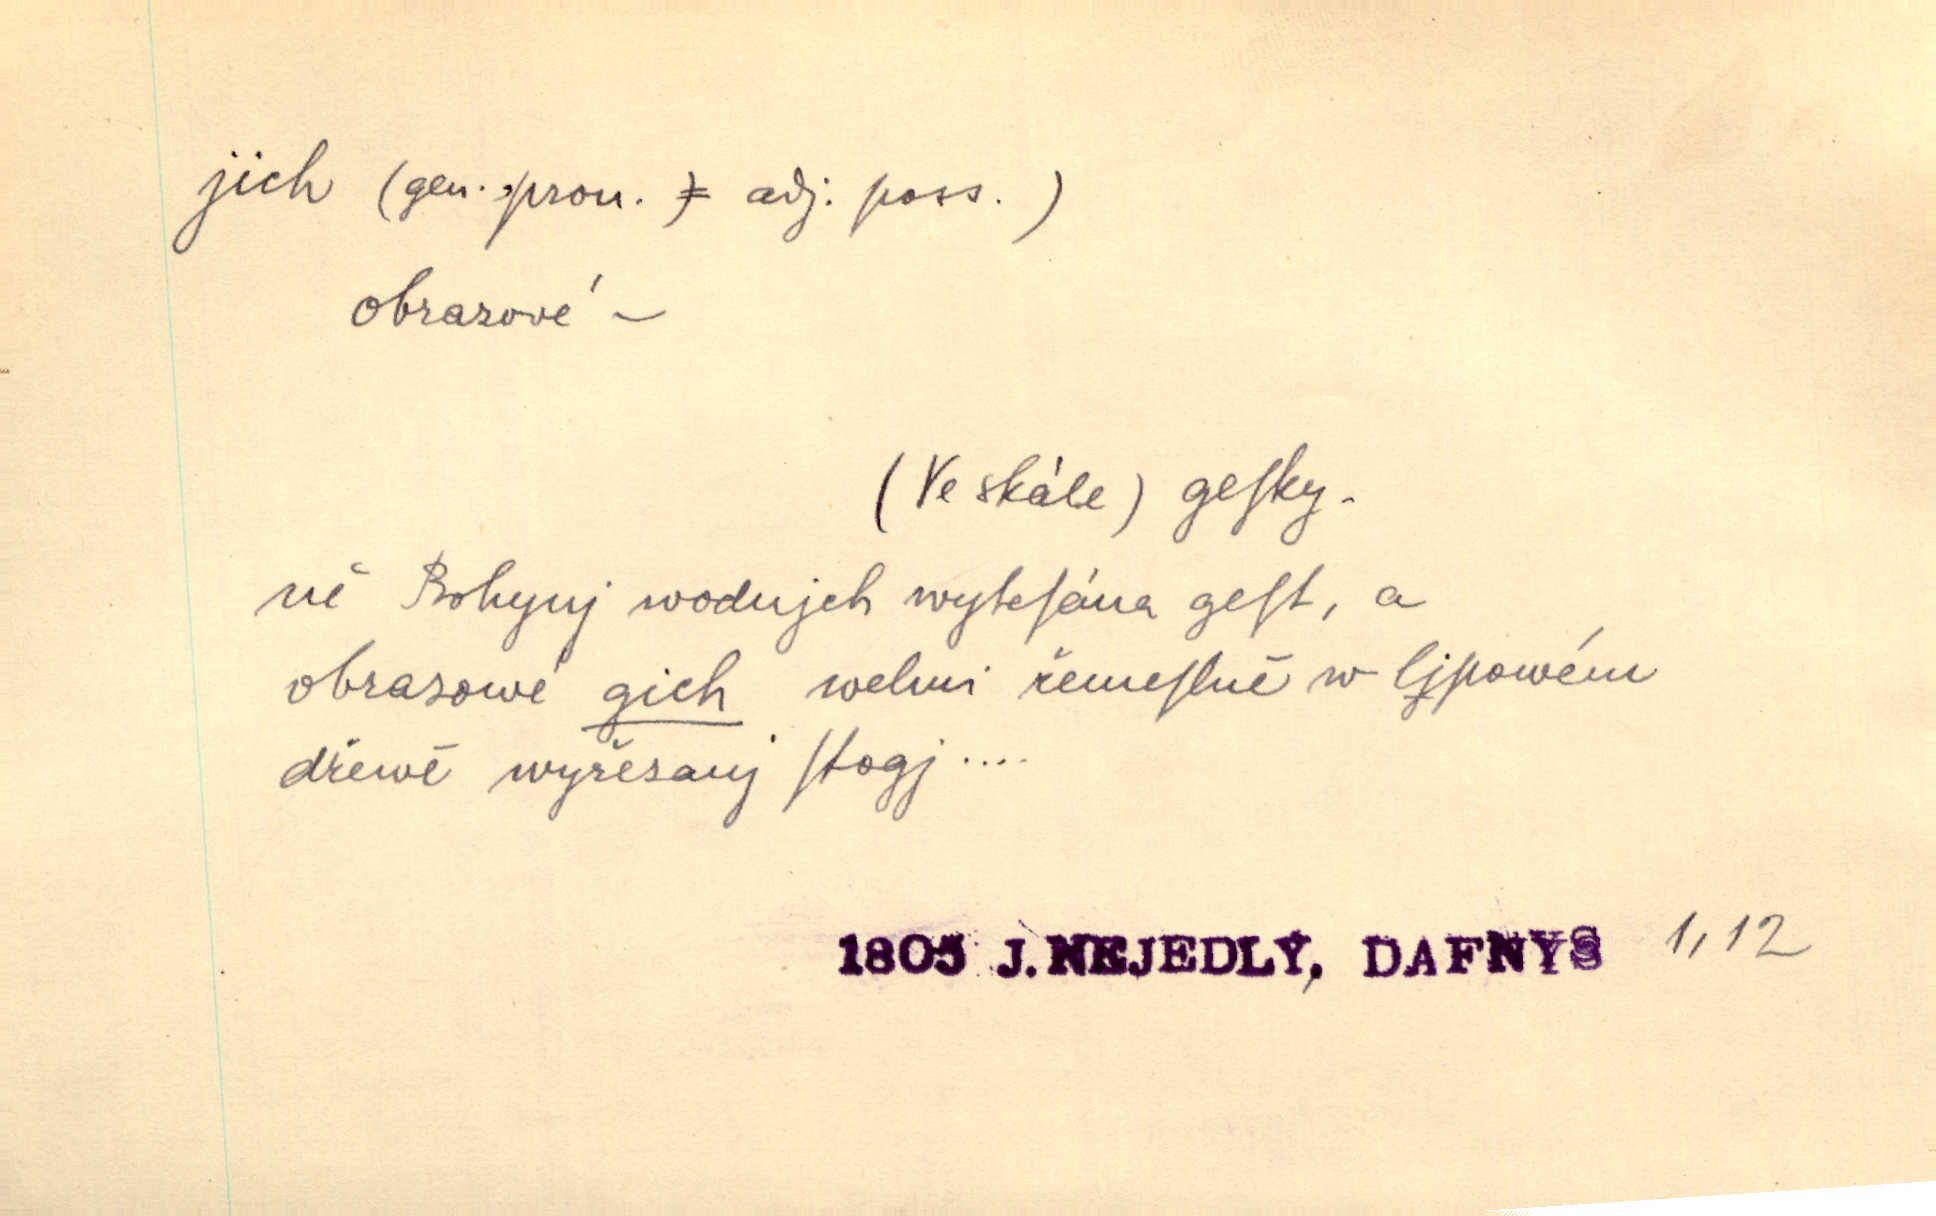 jich (gen. pron. = adj. poss.)
obrazové –
(Ve skále) geſky-
ně Bohynj wodnjch wyteſána geſt, a
obrazowé gich welmi řemeſlně w ljpowém
dřewě wyřezanj ſtogj ....
1805 J. NEJEDLÝ, DAFNYS 1,12